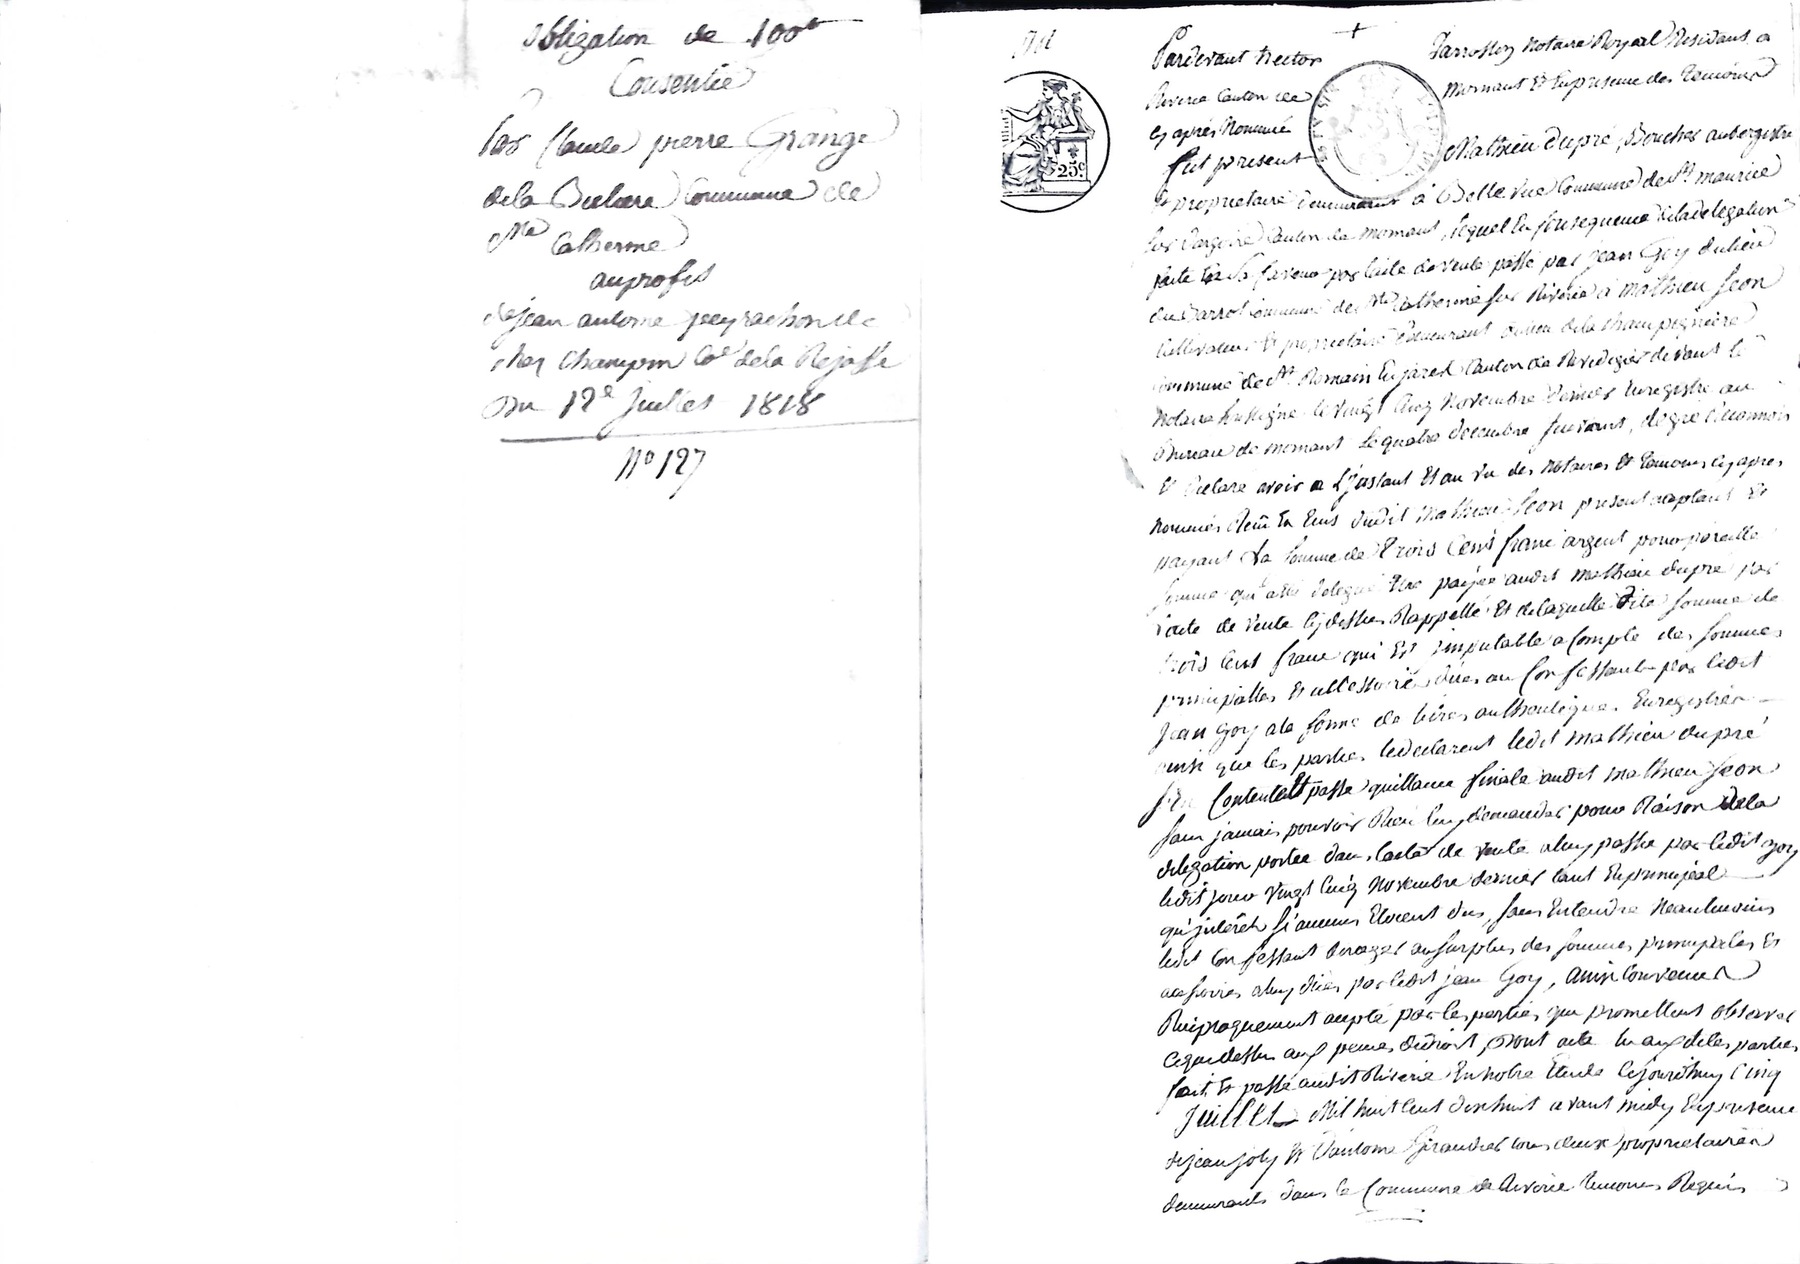 obligation de 100tt
Consentie
Par Claude pierre Grange
dela Commune de
Ste Catherine
auprofit
de jean antoine peyrachon de
chez Champin Cne dela Rejasse
Du 12e Juillet 1818
No 127
Pardevant hector Jarrossey Notaire Royal Residant a
Riverie Canton de Mornant Et Enpresence des temoins
cy après Nommés
fut present Mathieu dupré, Boucher aubergiste
Et proprietaire demeurant à Belle vue Commune de St maurice
sur dargoire Canton de mornant, lequel En Consequence dela delegation
faite En sa faveur par l'acte de vente passé par jean Goy dulieu
du Commune de Ste Catherine sur Riverie à mathieu Jeon
Cultivateur Et proprietaire demeurant aulieu dela Champignière
commune de St Romain En jarest Canton de Rivedegier devant le
Notaire Soussigné le vingt Cinq Novembre dernier Enregistré au
Bureau de mornant le quatre decembre suivant, degré à Reconnu
Et declaré avoir a l'Instant Et au vu des Notaires Et temoins cy apres
Nommés Reçu En Ecus dudit Mathieu Jeon present acceptant Et
payant la somme de trois Cent franc argent pour pareille
somme qui a été delegué Etre payée audit mathieu dupré par
l'acte de vente cy dessus Rappellé Et delaquelle dite somme de
trois Cent franc qui Est imputable a Compte des sommes
principalles Et accessoires dües au Confessant par ledit
Jean Goy ala forme de titres authentiques Enregistrés
ainsi que les parties le declarent ledit mathieu dupré
s'En Contente Et passe quittance finale audit mathieu Jeon
sans jamais pouvoir Rien luy demander pour Raison dela
delegation portée dans l'acte de vente aluy passée par ledit goy
ledit jour vingt Cinq Novembre dernier tant Enprincipal
qu'jnterêts si aucuns Etoient dus, sans Entendre Neantmoins
ledit Confessant deroger au surplus des sommes principales Et
accessoires aluy dües par ledit jean Goy, ainsi Convenu
Reciproquement accepté par les parties qui promettent observer
cequedessus aux peines dedroit, Dont acte lu auxdites parties
fait Et passé audit Riverie En notre Etude Cejourdhuy Cinq
Juillet Mil huit Cent dixhuit avant midy Enpresence
de jean joly Et d'antoine Giraudier tous deux proprietaires
demeurants dans la Commune de Riverie temoins Requis
25c